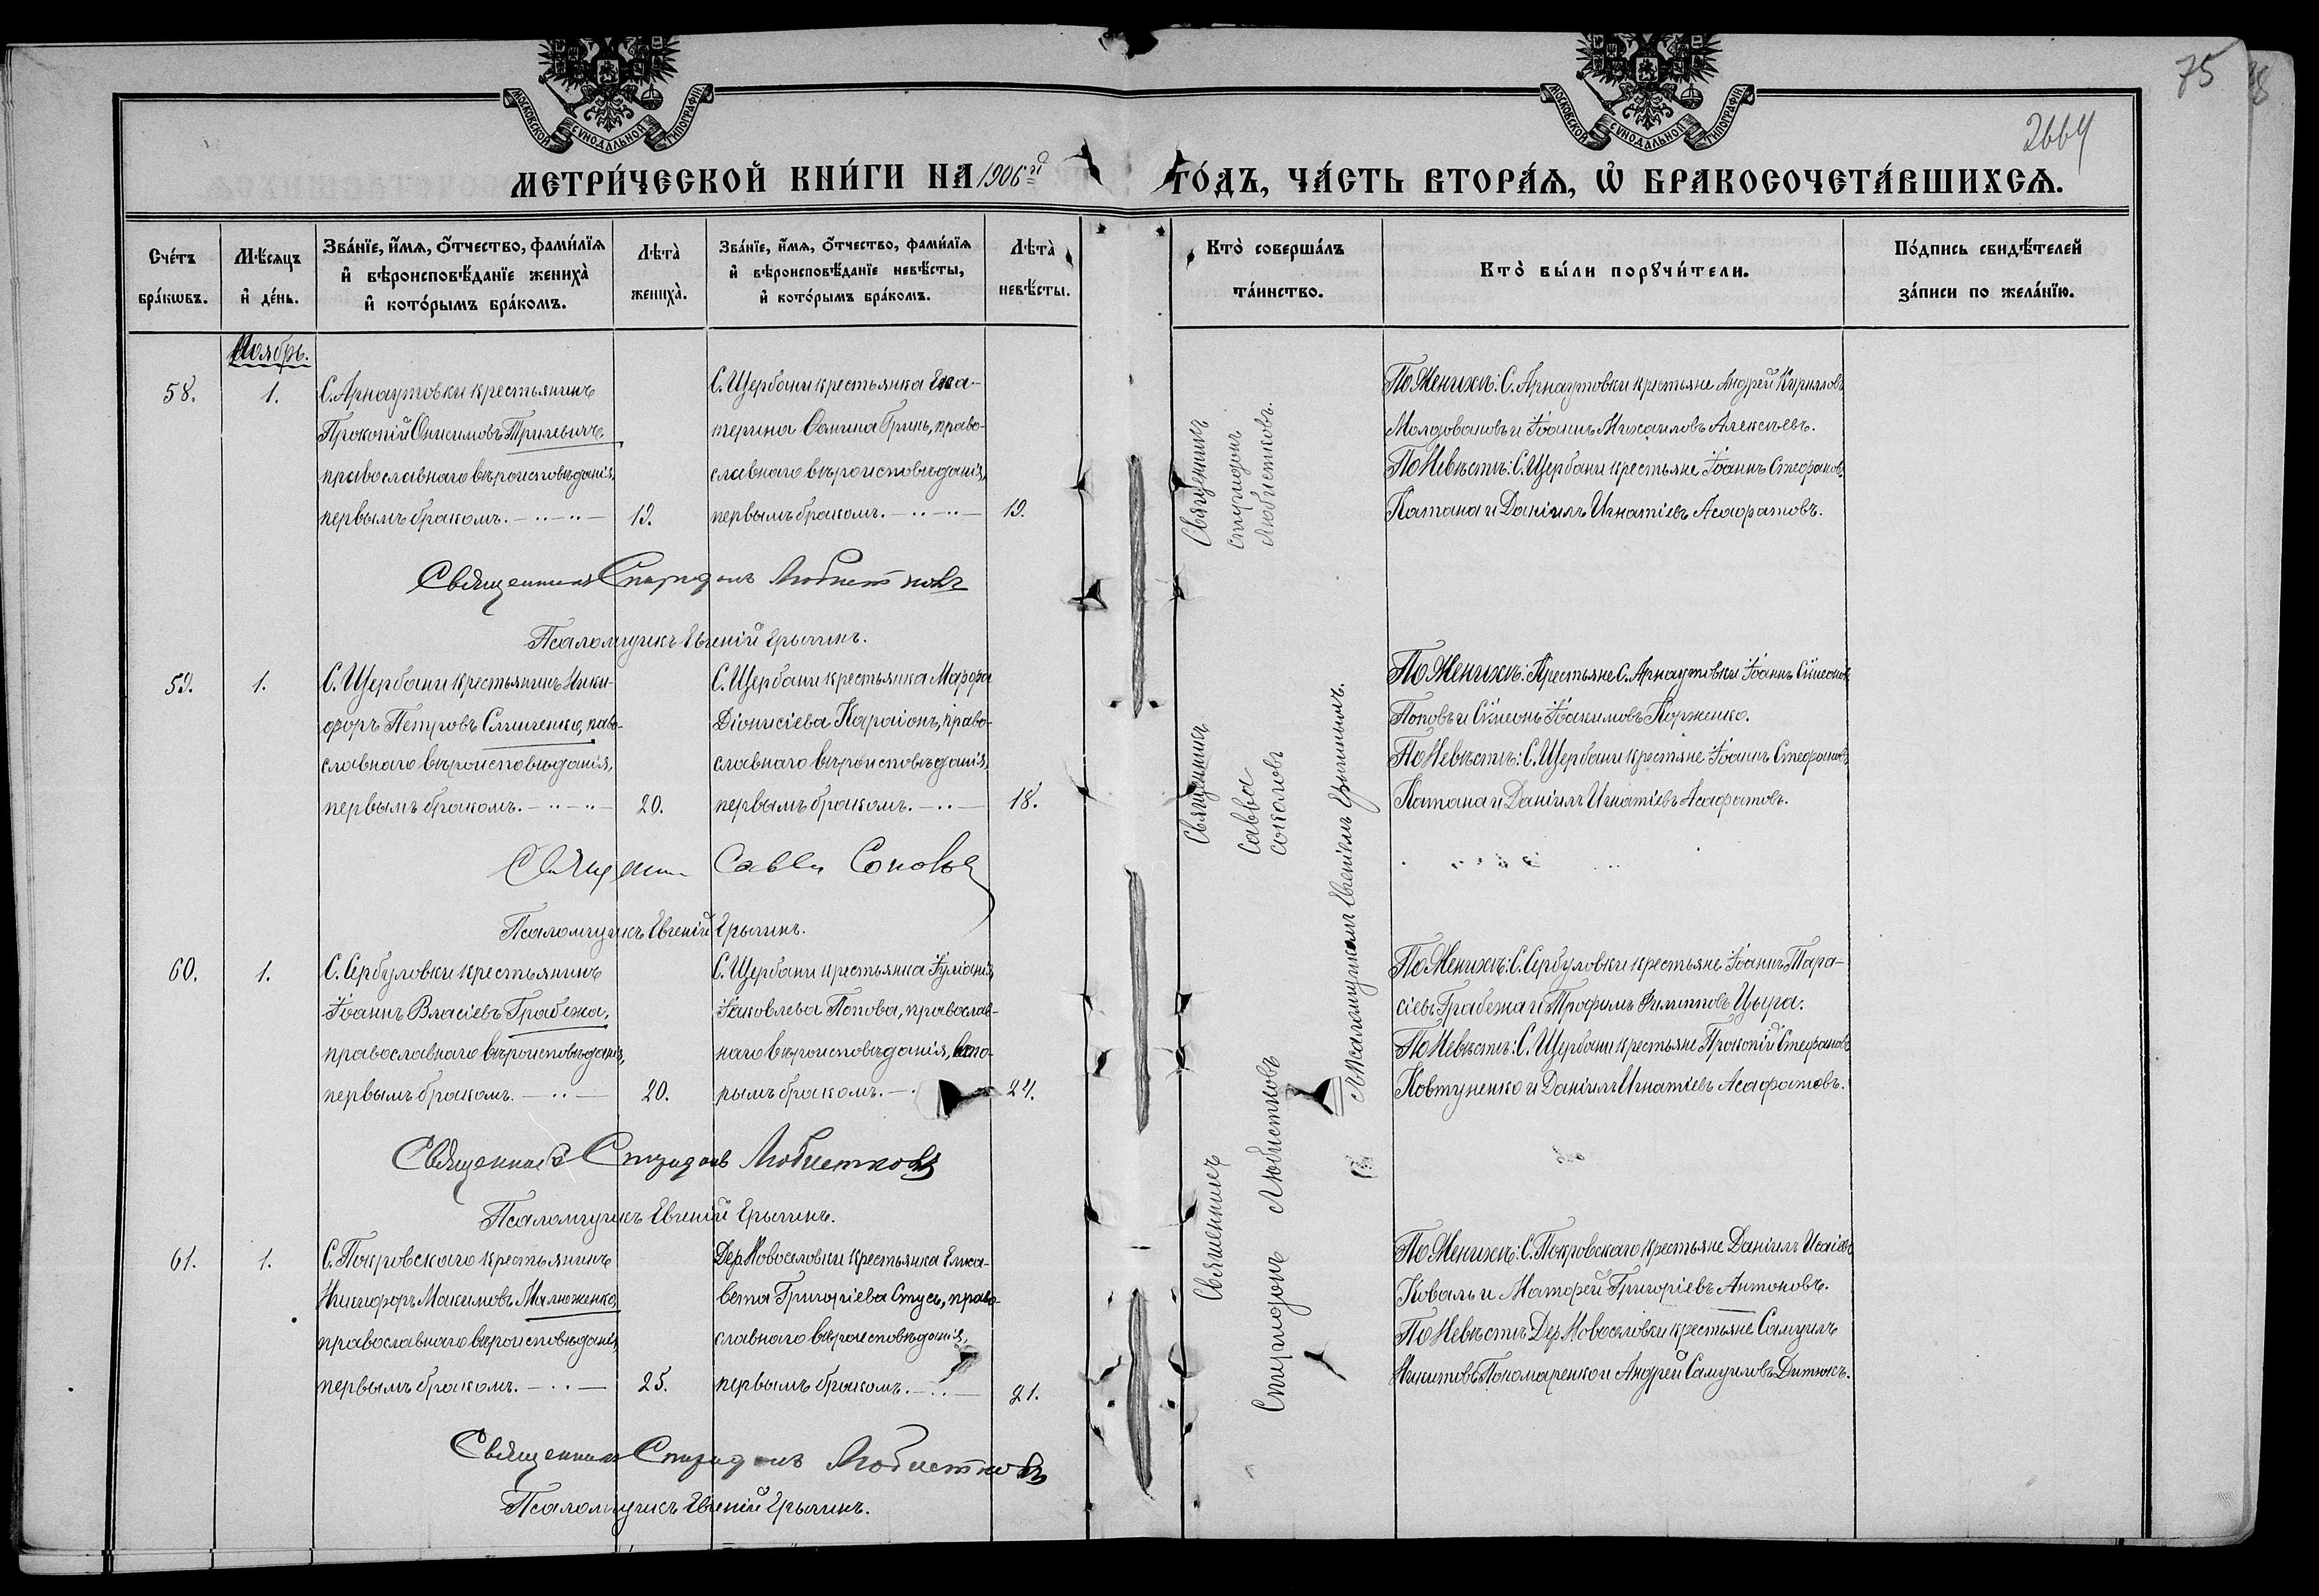 75
2664
МОСКОВСКОЙ СУНОДАЛЬНОЙ ТИПОГРАФІИ
МОСКОВСКОЙ СУНОДАЛЬНОЙ ТИПОГРАФІИ
МЕТРИ́ЧЕСКОЙ КНИ́ГИ НА 1906й
ГО́ДЪ, ЧА́СТЬ ВТОРА́Ѧ, Ѡ҆ БРАКОСОЧЕТА́ВШИХСѦ.
Сче́тъ бра́кѡвъ.
Мѣ́сѧцъ и҆ де́нь.
Зва́нїе, и҆́мѧ, ѻ҆́тчество, фами́лїѧ
и҆ вѣроисповѣ́данїе жениха̀
и҆ кото́рымъ бра́комъ.
Лѣта̀ жениха̀.
Зва́нїе, и҆́мѧ, ѻ҆́тчество, фами́лїѧ
и҆ вѣроисповѣ́данїе невѣ́сты,
и҆ кото́рымъ бра́комъ.
Лѣта̀ невѣ́сты.
Кто̀ соверша́лъ
та́инство.
Кто̀ бы́ли порꙋчи́тели.
По́дпись свидѣ́телей
за́писи по жела́нїю.
Ноябрь.
58.
1.
С. Арнаутовки крестьянинъ
Прокопій Онисимовъ Трилевичъ,
православнаго вѣроисповѣданія,
первымъ бракомъ.
19.
С. Щербани крестьянка Ека-
терина Ѳомина Бринь, право-
славнаго вѣроисповѣданія,
первымъ бракомъ.
19.
Священникъ
Спиридонъ
Любистковъ.
По Женихѣ: С. Арнаутовки крестьяне Андрей Кирилловъ
Молдовановъ и Іоаннъ Михаиловъ Алексѣевъ.
По Невѣстѣ: С. Щербани крестьяне Іоаннъ Стефановъ
Катана и Даніилъ Игнатіевъ Асафатовъ.
Священникъ Спиридонъ Любистковъ
Псаломщикъ Евгеній Ерыгинъ.
59.
1.
С. Щербани крестьянинъ Ники-
форъ Петровъ Сличенко, право-
славнаго вѣроисповѣданія,
первымъ бракомъ.
20.
С. Щербани крестьянка Марфа
Діонисіева Караіонъ, право-
славнаго вѣроисповѣданія,
первымъ бракомъ.
18.
Священникъ
Савва
Соколовъ
По Женихѣ: Крестьяне С. Арнаутовки Іоаннъ Сѵмеоновъ
Поповъ и Сѵмеонъ Іоакимовъ Корженко.
По Невѣстѣ: С. Щербани крестьяне Іоаннъ Стефановъ
Катана и Даніилъ Игнатіевъ Асафатовъ.
Священникъ Савва Соколовъ
Псаломщикъ Евгеній Ерыгинъ.
съ Псаломщикомъ Евгеніемъ Ерыгинымъ.
60.
1.
С. Сербуловки крестьянинъ
Іоаннъ Власіевъ Грабежа,
православнаго вѣроисповѣданія,
первымъ бракомъ.
20.
С. Щербани крестьянка Іуліанія
Іаковлева Попова, православ-
наго вѣроисповѣданія, вто-
рымъ бракомъ.
24.
По Женихѣ: С. Сербуловки крестьяне Іоаннъ Тара-
сіевъ Грабежа и Трофимъ Филипповъ Цыра.
По Невѣстѣ: С. Щербани крестьяне Прокопій Стефановъ
Ковтуненко и Даніилъ Игнатіевъ Асафатовъ.
Священникъ Спиридонъ Любистковъ
Псаломщикъ Евгеній Ерыгинъ.
61.
1.
С. Покровскаго крестьянинъ
Никифоръ Максимовъ Малюженко,
православнаго вѣроисповѣданія,
первымъ бракомъ.
25.
Дер. Новоселовки крестьянка Елиса-
вета Григоріева Стусь, право-
славнаго вѣроисповѣданія,
первымъ бракомъ.
21.
Священникъ
Спиридонъ Любистковъ
По Женихѣ: С. Покровскаго крестьяне Даніилъ Исаіевъ
Коваль и Матфей Григоріевъ Антоновъ.
По Невѣстѣ Дер. Новоселовки крестьяне Самуилъ
Никитовъ Пономаренко и Андрей Самуиловъ Дитюкъ.
Священникъ Спиридонъ Любистковъ
Псаломщикъ Евгеній Ерыгинъ.